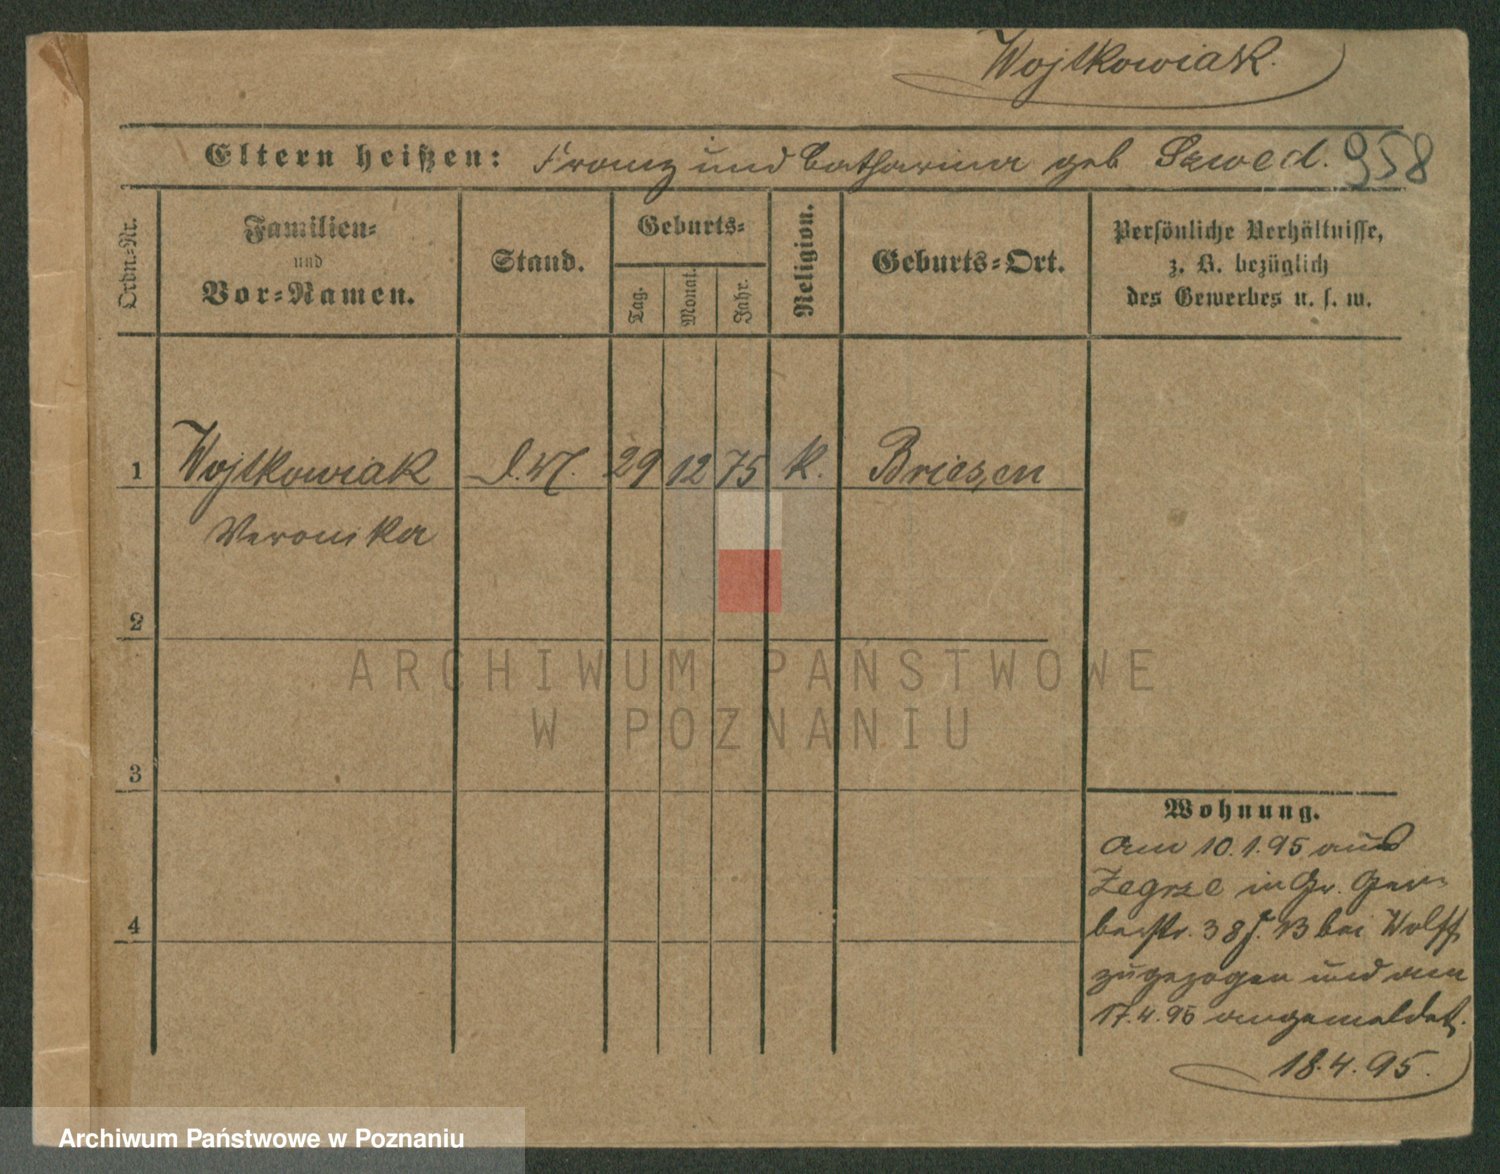 Wojtkowiak.
Eltern heißen: Franz und Catharina geb Szwed. 958
Ordn.=Nr.
Familien=
und
Vor=Namen.
Stand.
Geburts=
Tag.
Monat.
Jahr.
Religion.
Geburts=Ort.
Persönliche Verhältnisse,
z. B. bezüglich
des Gewerbes u. s. w.
1 Wojtkowiak D.M. 29 12 75 k. Briesen
Veronika
2
3
4
Wohnung.
Am 10.1.95 aus
Zegrze in Gr. Ger-
berstr. 38 f. 13 bei Wolff
zugezogen und am
17.4.95 angemeldet.
18.4.95.
ARCHIWUM PAŃSTWOWE
W POZNANIU
Archiwum Państwowe w Poznaniu